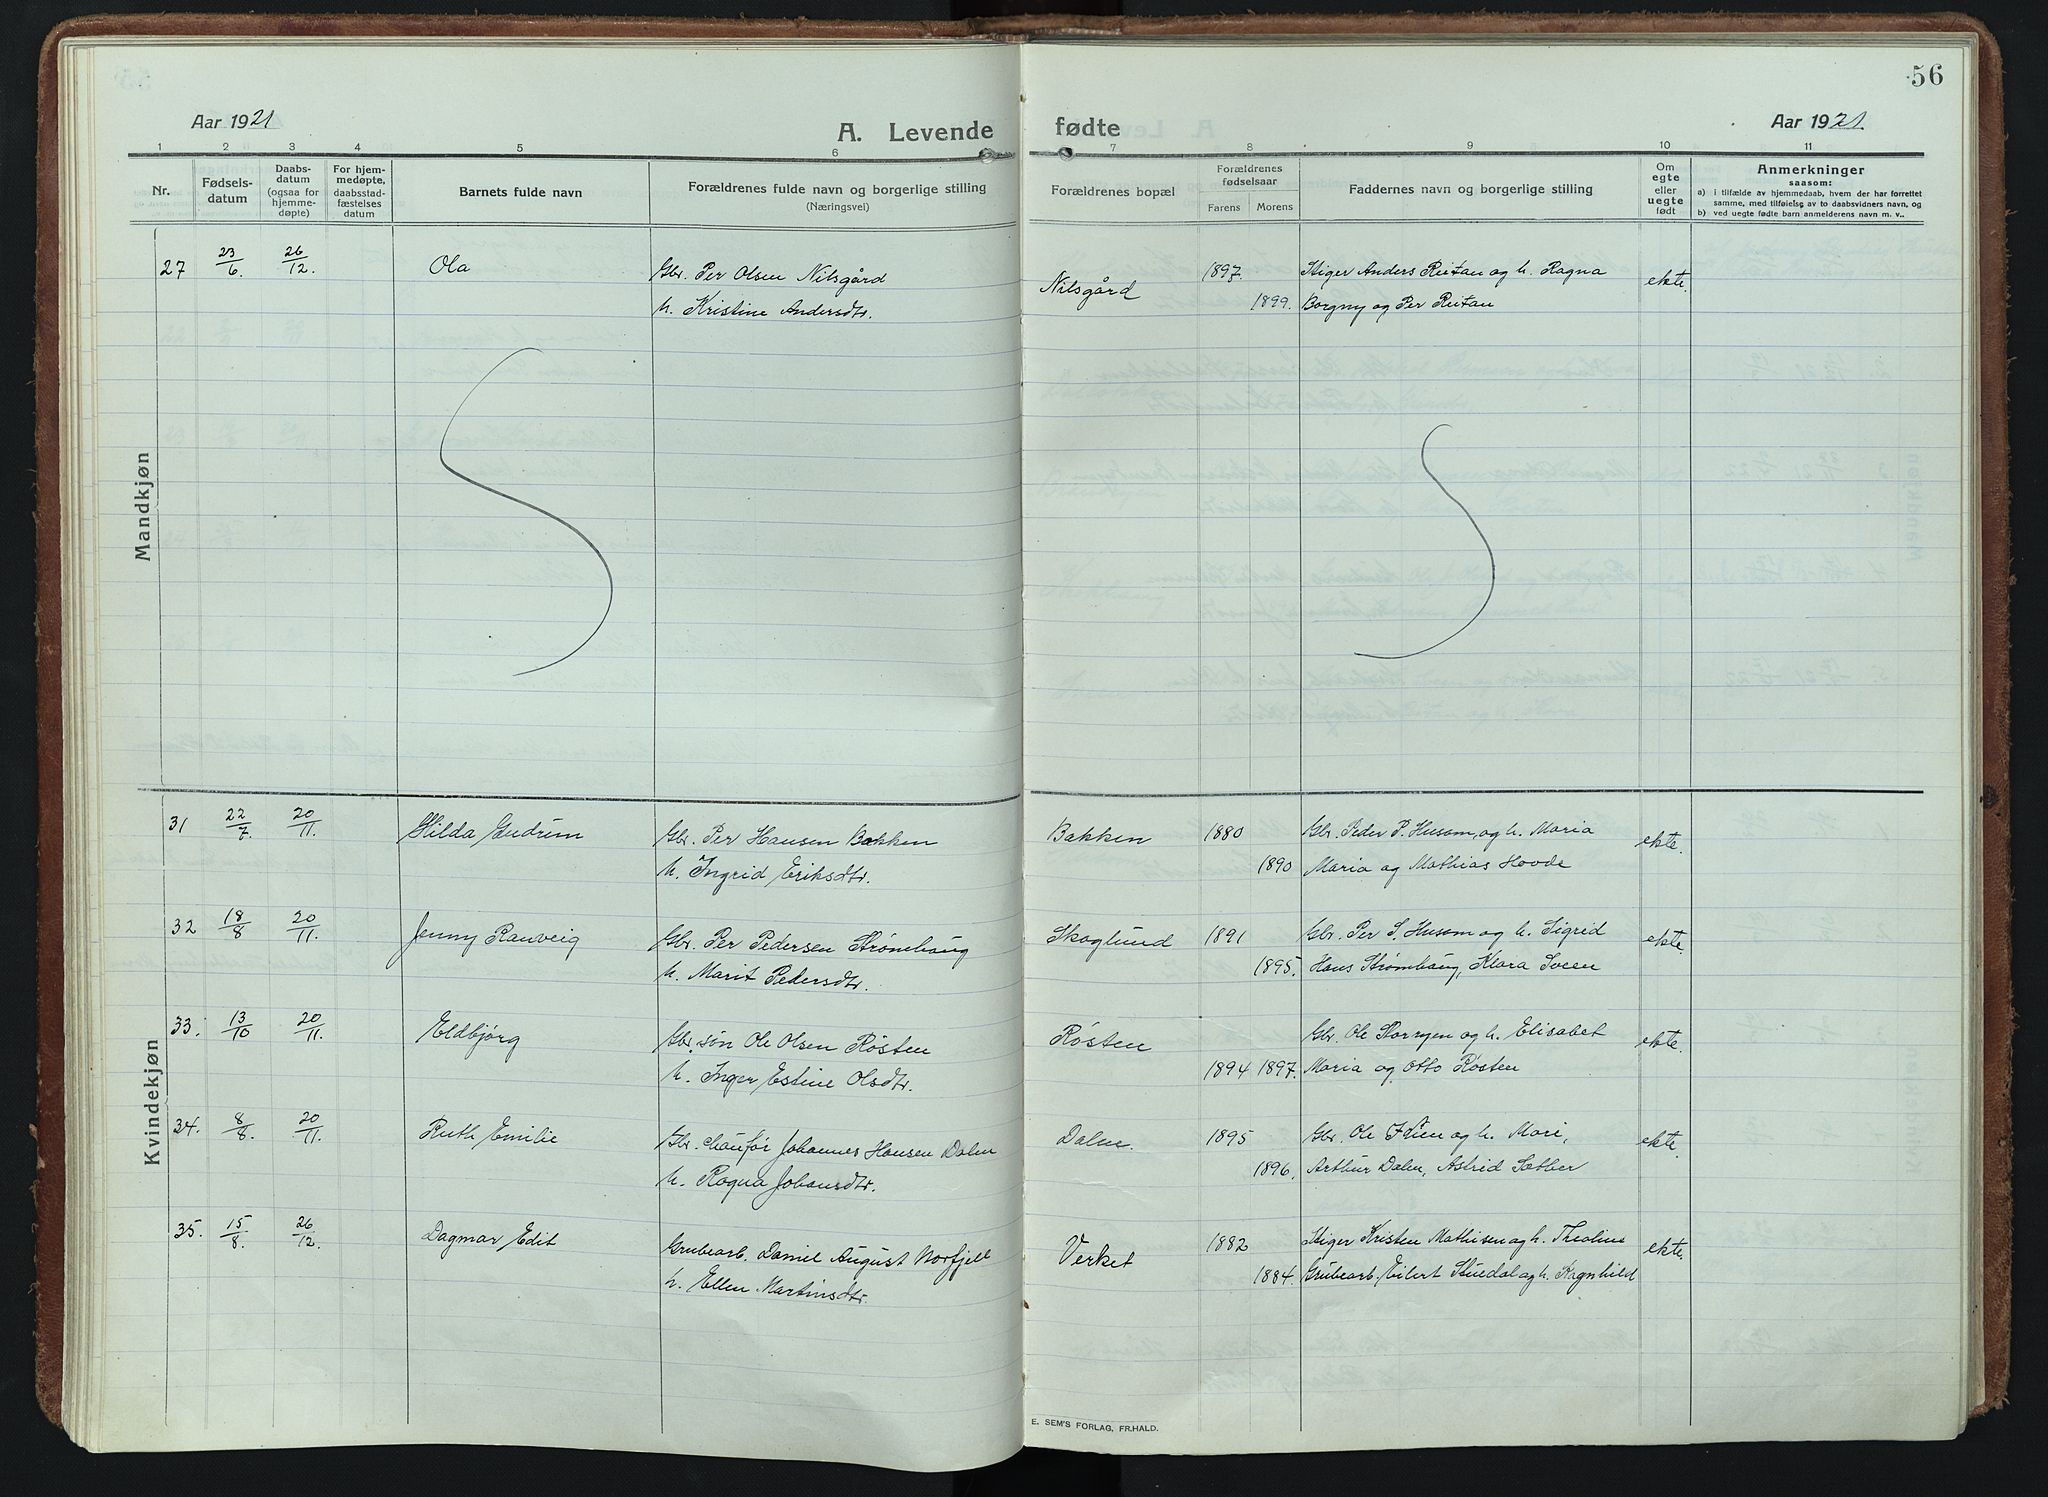 56
Aar 1921
A. Levende fødte
Aar 1921
1 2 3 4 5 6 7 8 9 10 11
Nr.
Fødsels-
datum
Daabs-
datum
(ogsaa for
hjemme-
døpte)
For hjem-
medøpte,
daabsstad-
fæstelses
datum
Barnets fulde navn
Forældrenes fulde navn og borgerlige stilling
(Næringsvei)
Forældrenes bopæl
Forældrenes
fødselsaar
Farens Morens
Faddernes navn og borgerlige stilling
Om
egte
eller
uegte
født
Anmerkninger
saasom:
a) i tilfælde av hjemmedaab, hvem der har forrettet
samme, med tilføielse av to daabsvidners navn, og
b) ved uegte fødte barn anmelderens navn m. v..
Mandkjøn
27 23/6. 26/12. Ola Gbr. Per Olsen Nilsgård Nilsgård 1897. Stiger Anders Reitan og h. Ragna ekte.
h. Kristine Andersdtr. 1899. Borgny og Per Reitan
Kvindekjøn
31 22/7. 20/11. Hilda Gudrun Gbr. Per Hansen Bakken Bakken 1880 Gbr. Peder P. Husom, og h. Maria ekte.
h. Ingrid Eriksdtr. 1890 Maria og Mathias Hovde
32 18/8 20/11. Jenny Ranveig Gbr. Per Pedersen Strømhaug Skoglund 1891 Gbr. Per S. Husom og h. Sigrid ekte.
h. Marit Pedersdtr. 1895. Hans Strømhaug, Klara Sveen
33. 13/10 20/11. Eldbjørg Gbr. søn Ole Olsen Røsten Røsten Gbr. Ole Storrøen og h. Elisabet ekte.
h. Inger Estine Olsdtr. 1894 1897. Maria og Otto Røsten
34. 8/8. 20/11. Ruth Emilie Gbr. chaufør Johannes Hansen Dalen Dalen. 1895 Gbr. Ole og h. Mari, ekte.
h. Ragna Johansdtr. 1896. Arthur Dalen, Astrid Sæther
35. 15/8. 26/12. Dagmar Edit Grubearb. Daniel August Norfjell Verket 1882 Stiger Kristen Mathisen og h. Theoline ekte.
h. Ellen Martinsdtr. 1884. Grubearb. Eilert Stuedal og h. Ragnhild
E. SEM'S FORLAG, FR.HALD.